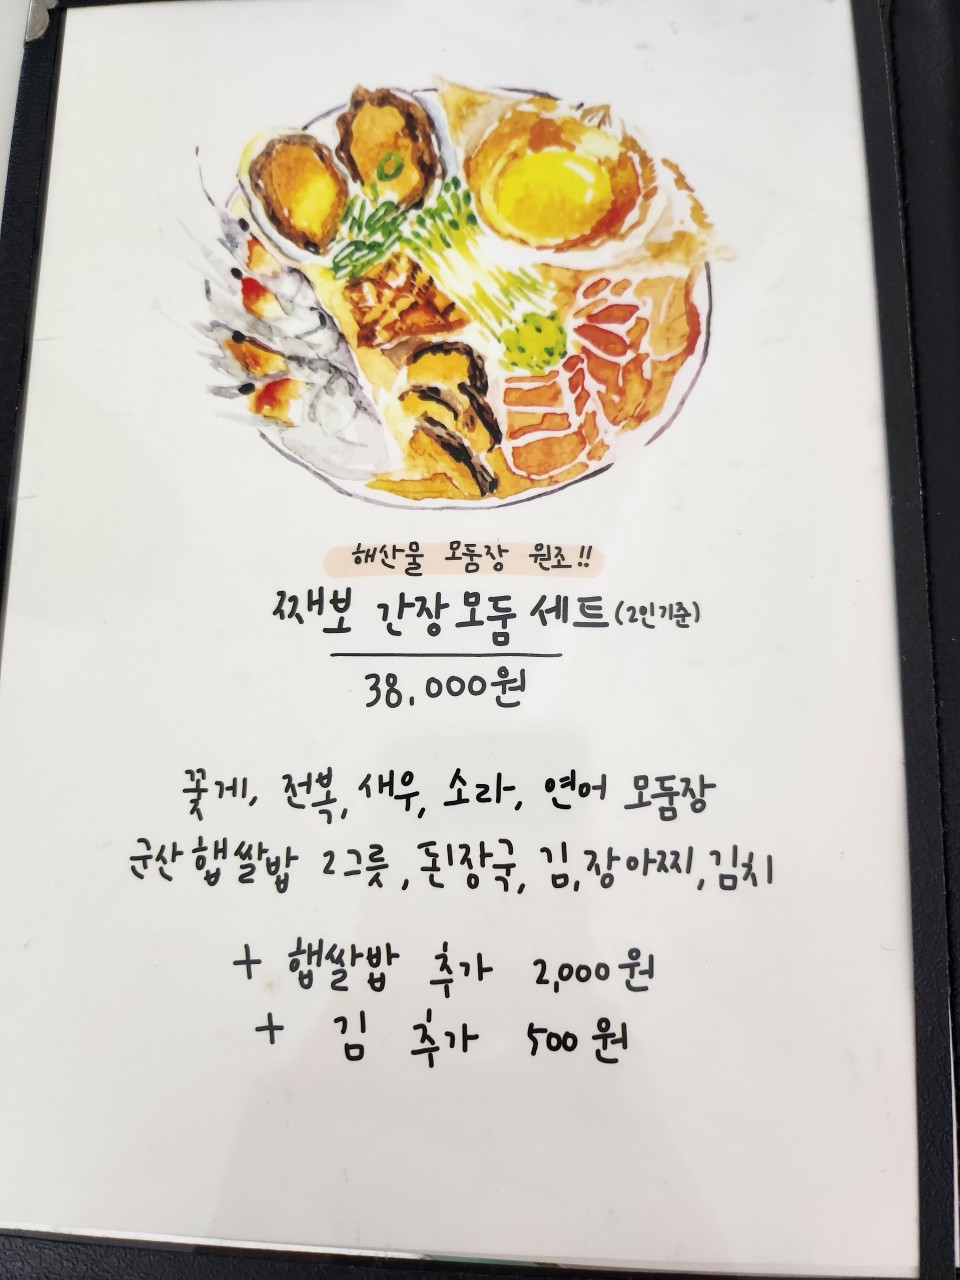 해산물 모둠장 원조!!
째보 간장모둠 세트(2인기준)
38,000원
꽃게, 전복, 새우, 소라, 연어 모둠장
군산햅쌀밥 2그릇, 된장국, 김, 장아찌, 김치
+ 햅쌀밥 추가 2,000원
+ 김 추가 500원